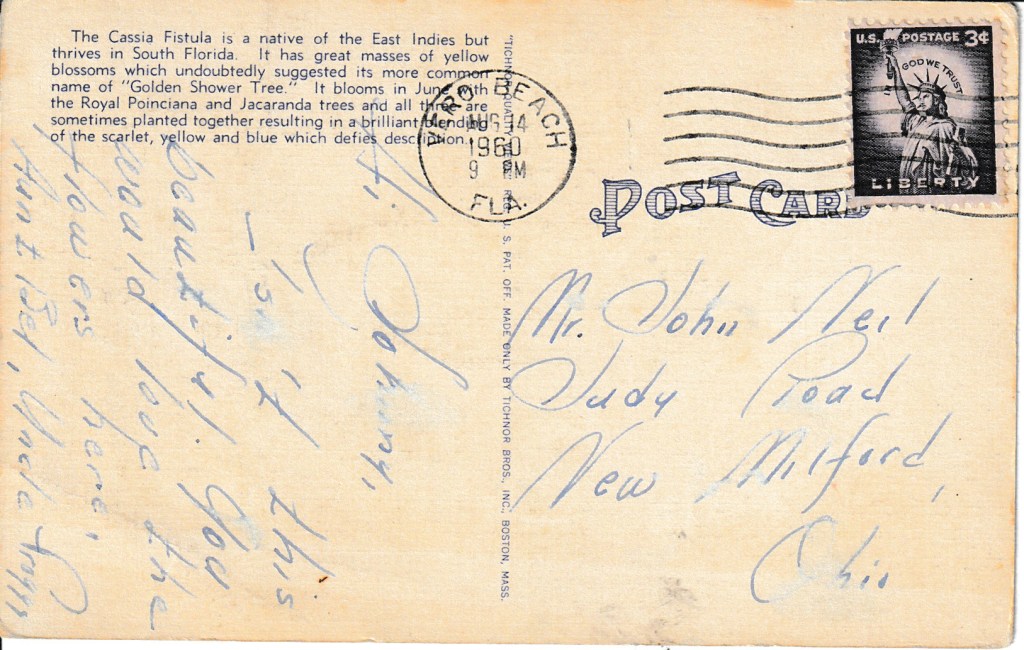 The Cassia Fistula is a native of the East Indies but
thrives in South Florida. It has great masses of yellow
blossoms which undoubtedly suggested its more common
name of "Golden Shower Tree." It blooms in June with
the Royal Poinciana and Jacaranda trees and all three are
sometimes planted together resulting in a brilliant blending
of the scarlet, yellow and blue which defies description.
Hi Johnny,
Isn't this
beautiful. You
would love the
flowers here.
Aunt Bel, Uncle
"TICHNOR QUALITY REG. U. S. PAT. OFF. MADE ONLY BY TICHNOR BROS., INC., BOSTON, MASS.
VERO BEACH
AUG 14
1960
9 PM
FLA.
U.S. POSTAGE 3¢
IN GOD WE TRUST
LIBERTY
POST CARD
Mr. John Neil
Judy Road
New Milford,
Ohio